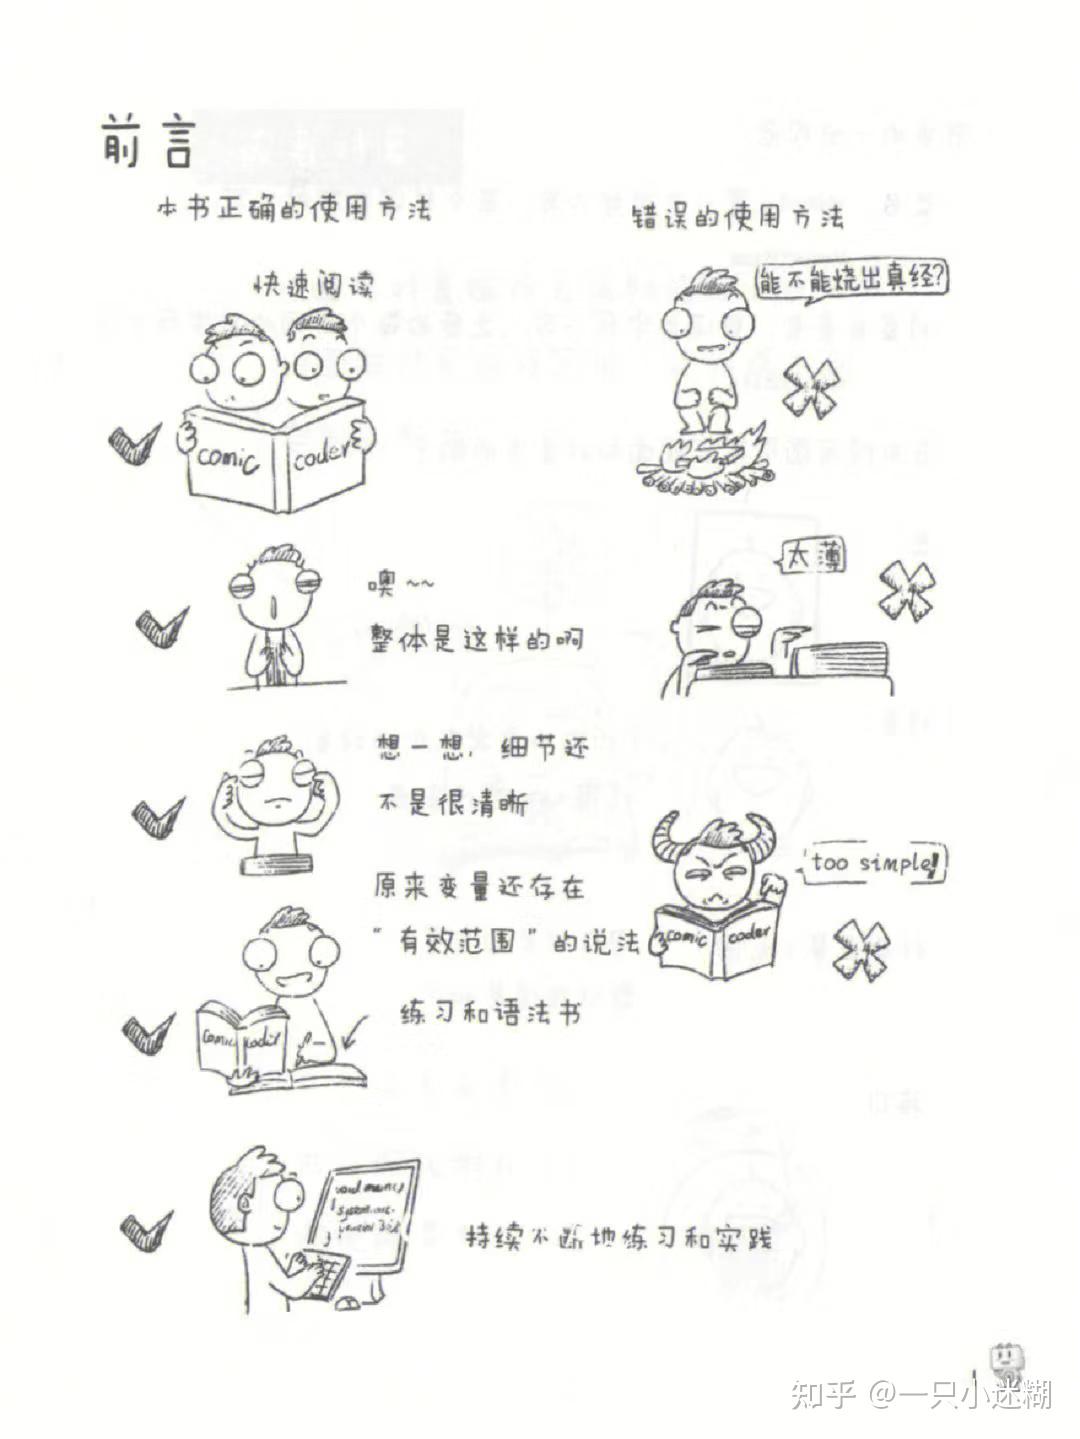 前言
本书正确的使用方法
快速阅读
comic coder
噢~~
整体是这样的啊
想一想，细节还
不是很清晰
原来变量还存在
“有效范围”的说法
练习和语法书
comic
持续不断地练习和实践
错误的使用方法
能不能烧出真经？
太薄
too simple!
comic coder
1
知乎 @一只小迷糊